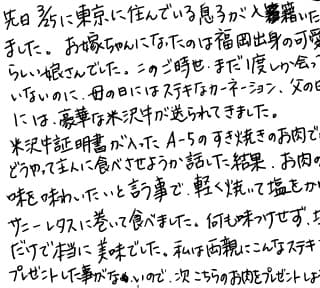 先日3/25に東京に住んでいる息子が入籍いた
ました。お嫁ちゃんになったのは福岡出身の可愛
らしい娘さんでした。このご時世、まだ1度しか会っ
いないのに、母の日にはステキなカーネーション、父の日
には、豪華な米沢牛が送られてきました。
米沢牛証明書が入ったA-5のすき焼きのお肉で
どうやって主人に食べさせようか話した結果、お肉の
味を味わいたいと言う事で、軽く焼いて塩をか
サニーレタスに巻いて食べました。何も味つけせず、
だけで本当に美味でした。私は両親にこんなステキ
プレゼントした事がないので、次こちらのお肉をプレゼントしよ